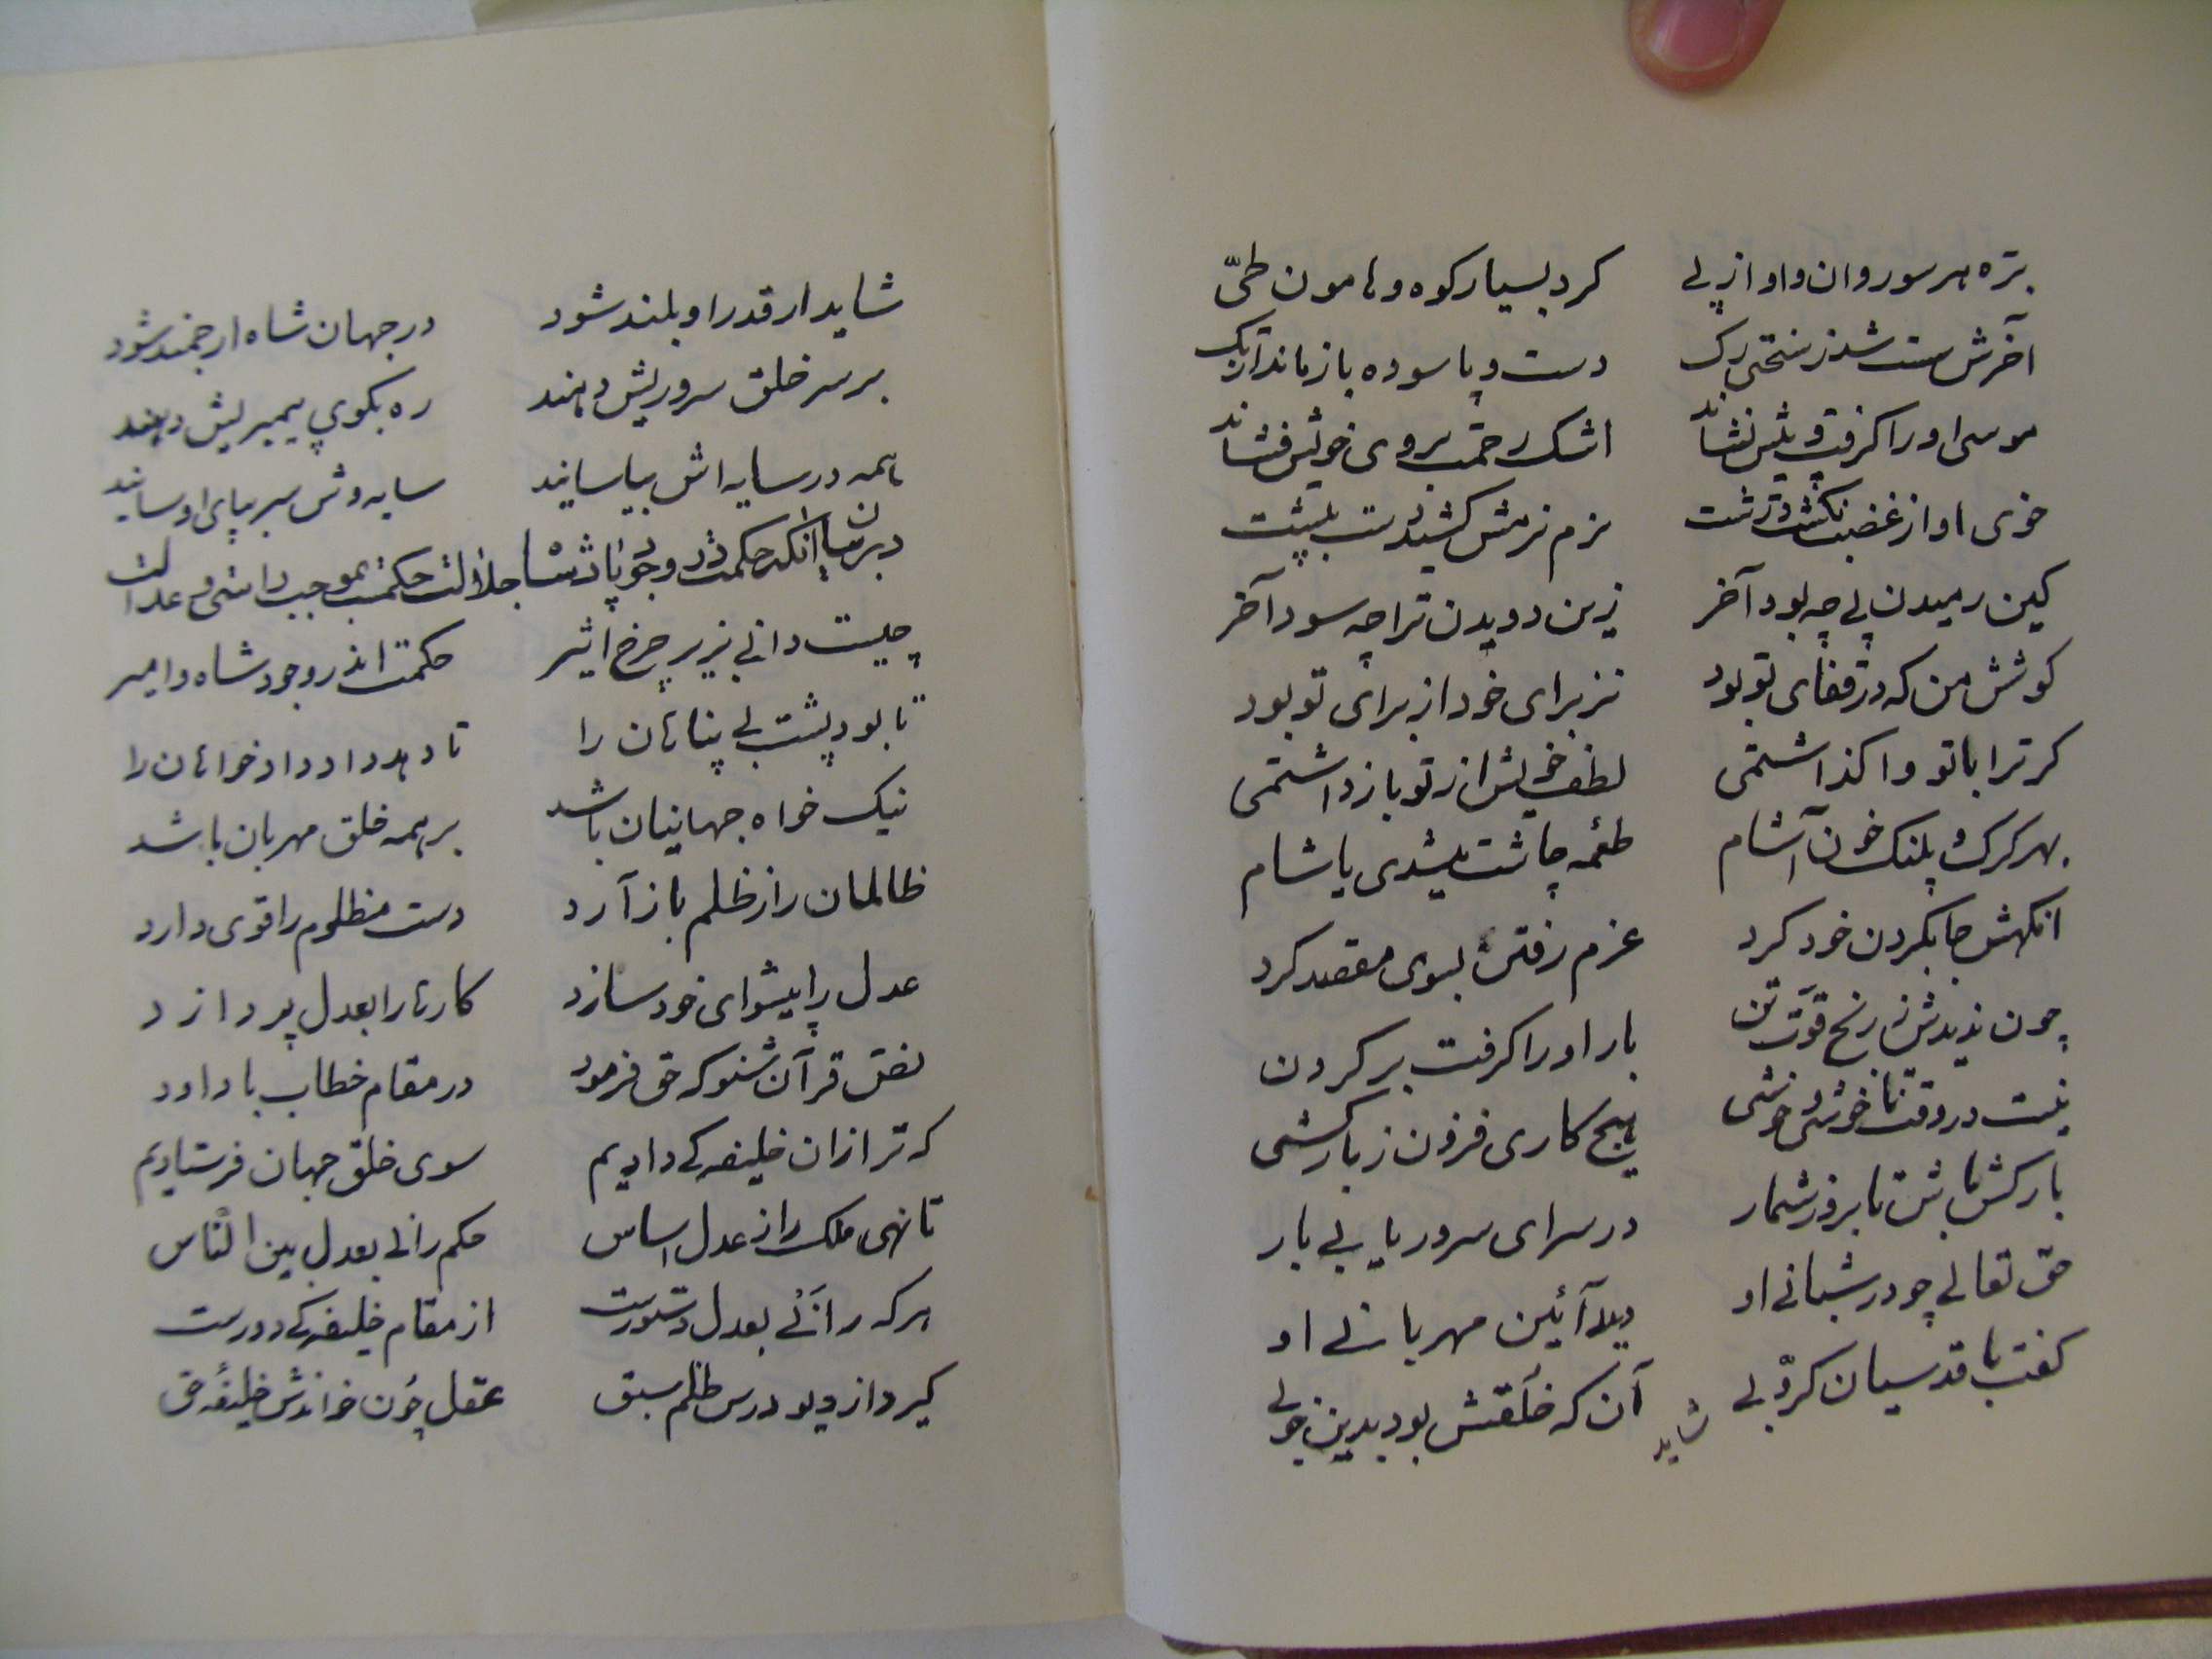 بره هر سو روان و او از پی کرد بسیار کوه و هامون طیّ
آخرش سست شد ز سختی رک دست و پا سوده بازماند از تک
موسی او را گرفت و پیش نشاند اشک رحمت بروی خویش فشاند
خوی او از غضب نکشت درشت نرم نرمش کشید دست بپشت
کین رمیدن پی چه بود آخر زین دویدن ترا چه سود آخر
کوشش من که در قفای تو بود نز برای خود از برای تو بود
کر ترا با تو وا کذاشتمی لطف خویش از تو باز داشتمی
بهر کرک و پلنک خون آشام طعمه چاشت میشدی یا شام
انکهش جا بکردن خود کرد عزم رفتن بسوی مقصد کرد
چون ندیدش ز رنج قوّت تن بار او را کرفت بر کردن
نیست در وقت ناخوشی و خوشی هیچ کاری فزون ز بارکشی
بارکش باش تا بروز شمار در سرای سرور یابی بار
حق تعالی چو در شبانی او دید آئین مهربانی او
کفت با قدسیان کرّوبی آن که خلقش بود بدین خوبی
شاید
شاید ار قدر او بلند شود در جهان شاه ارجمند شود
بر سر خلق سروریش دهند ره بکوی پیمبریش دهند
همه در سایه اش بیاسایند سایه وش سر بپای او سایند
در بیان انکه حکمت در وجود پادشاه جلالت حکمت بموجب راستی و عدالت
چیست دانی بزیر چرخ اثیر حکمت اندر وجود شاه و امیر
تا بود پشت بی پناهان را تا دهد داد دادخواهان را
نیک خواه جهانیان باشد بر همه خلق مهربان باشد
ظالمان را ز ظلم باز آرد دست مظلوم را قوی دارد
عدل را پیشوای خود سازد کارها را بعدل پردازد
نص قرآن شنو که حق فرمود در مقام خطاب با داود
که ترا زان خلیفه کی دادیم سوی خلق جهان فرستادیم
تا نهی ملک را ز عدل اساس حکم رانی بعدل بین النّاس
هر که را نی بعدل دستورست از مقام خلیفه کی دورست
کیرد از دیو درس ظلم سبق عقل چون خواندش خلیفهٔ حق